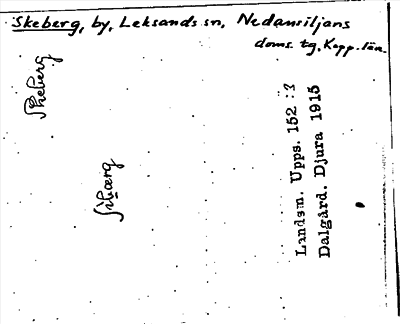 Skeberg, by, Leksands sn, Nedansiljans
doms. tg, Kopp. län.
Skeberg
Landsm. Upps. 152:3
Dalgård. Djura 1915